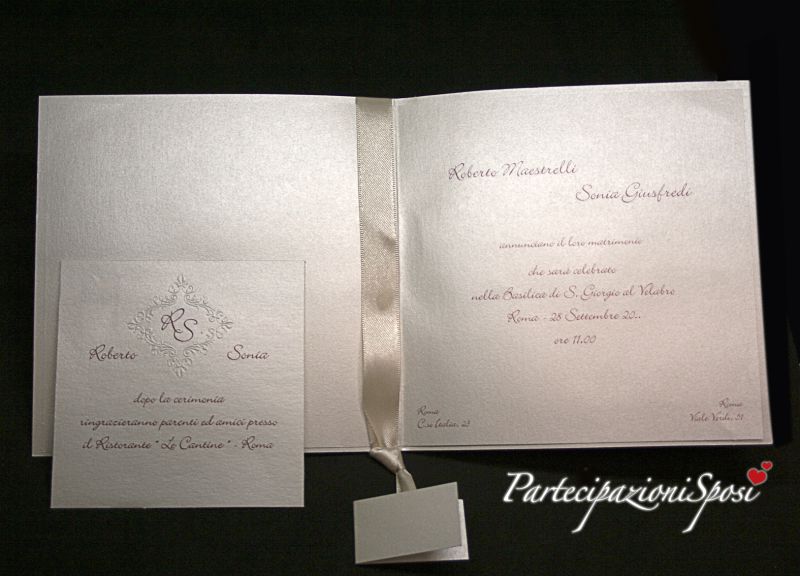 Roberto Maestrelli
Sonia Giusfredi
annunciano il loro matrimonio
che sarà celebrato
nella Basilica di S. Giorgio al Velabro
Roma - 28 Settembre 20..
ore 11.00
Roma
C.so Italia, 23
Roma
Viale Verdi, 31
RS
Roberto Sonia
dopo la cerimonia
ringrazieranno parenti ed amici presso
il Ristorante " Le Cantine " - Roma
PartecipazioniSposi